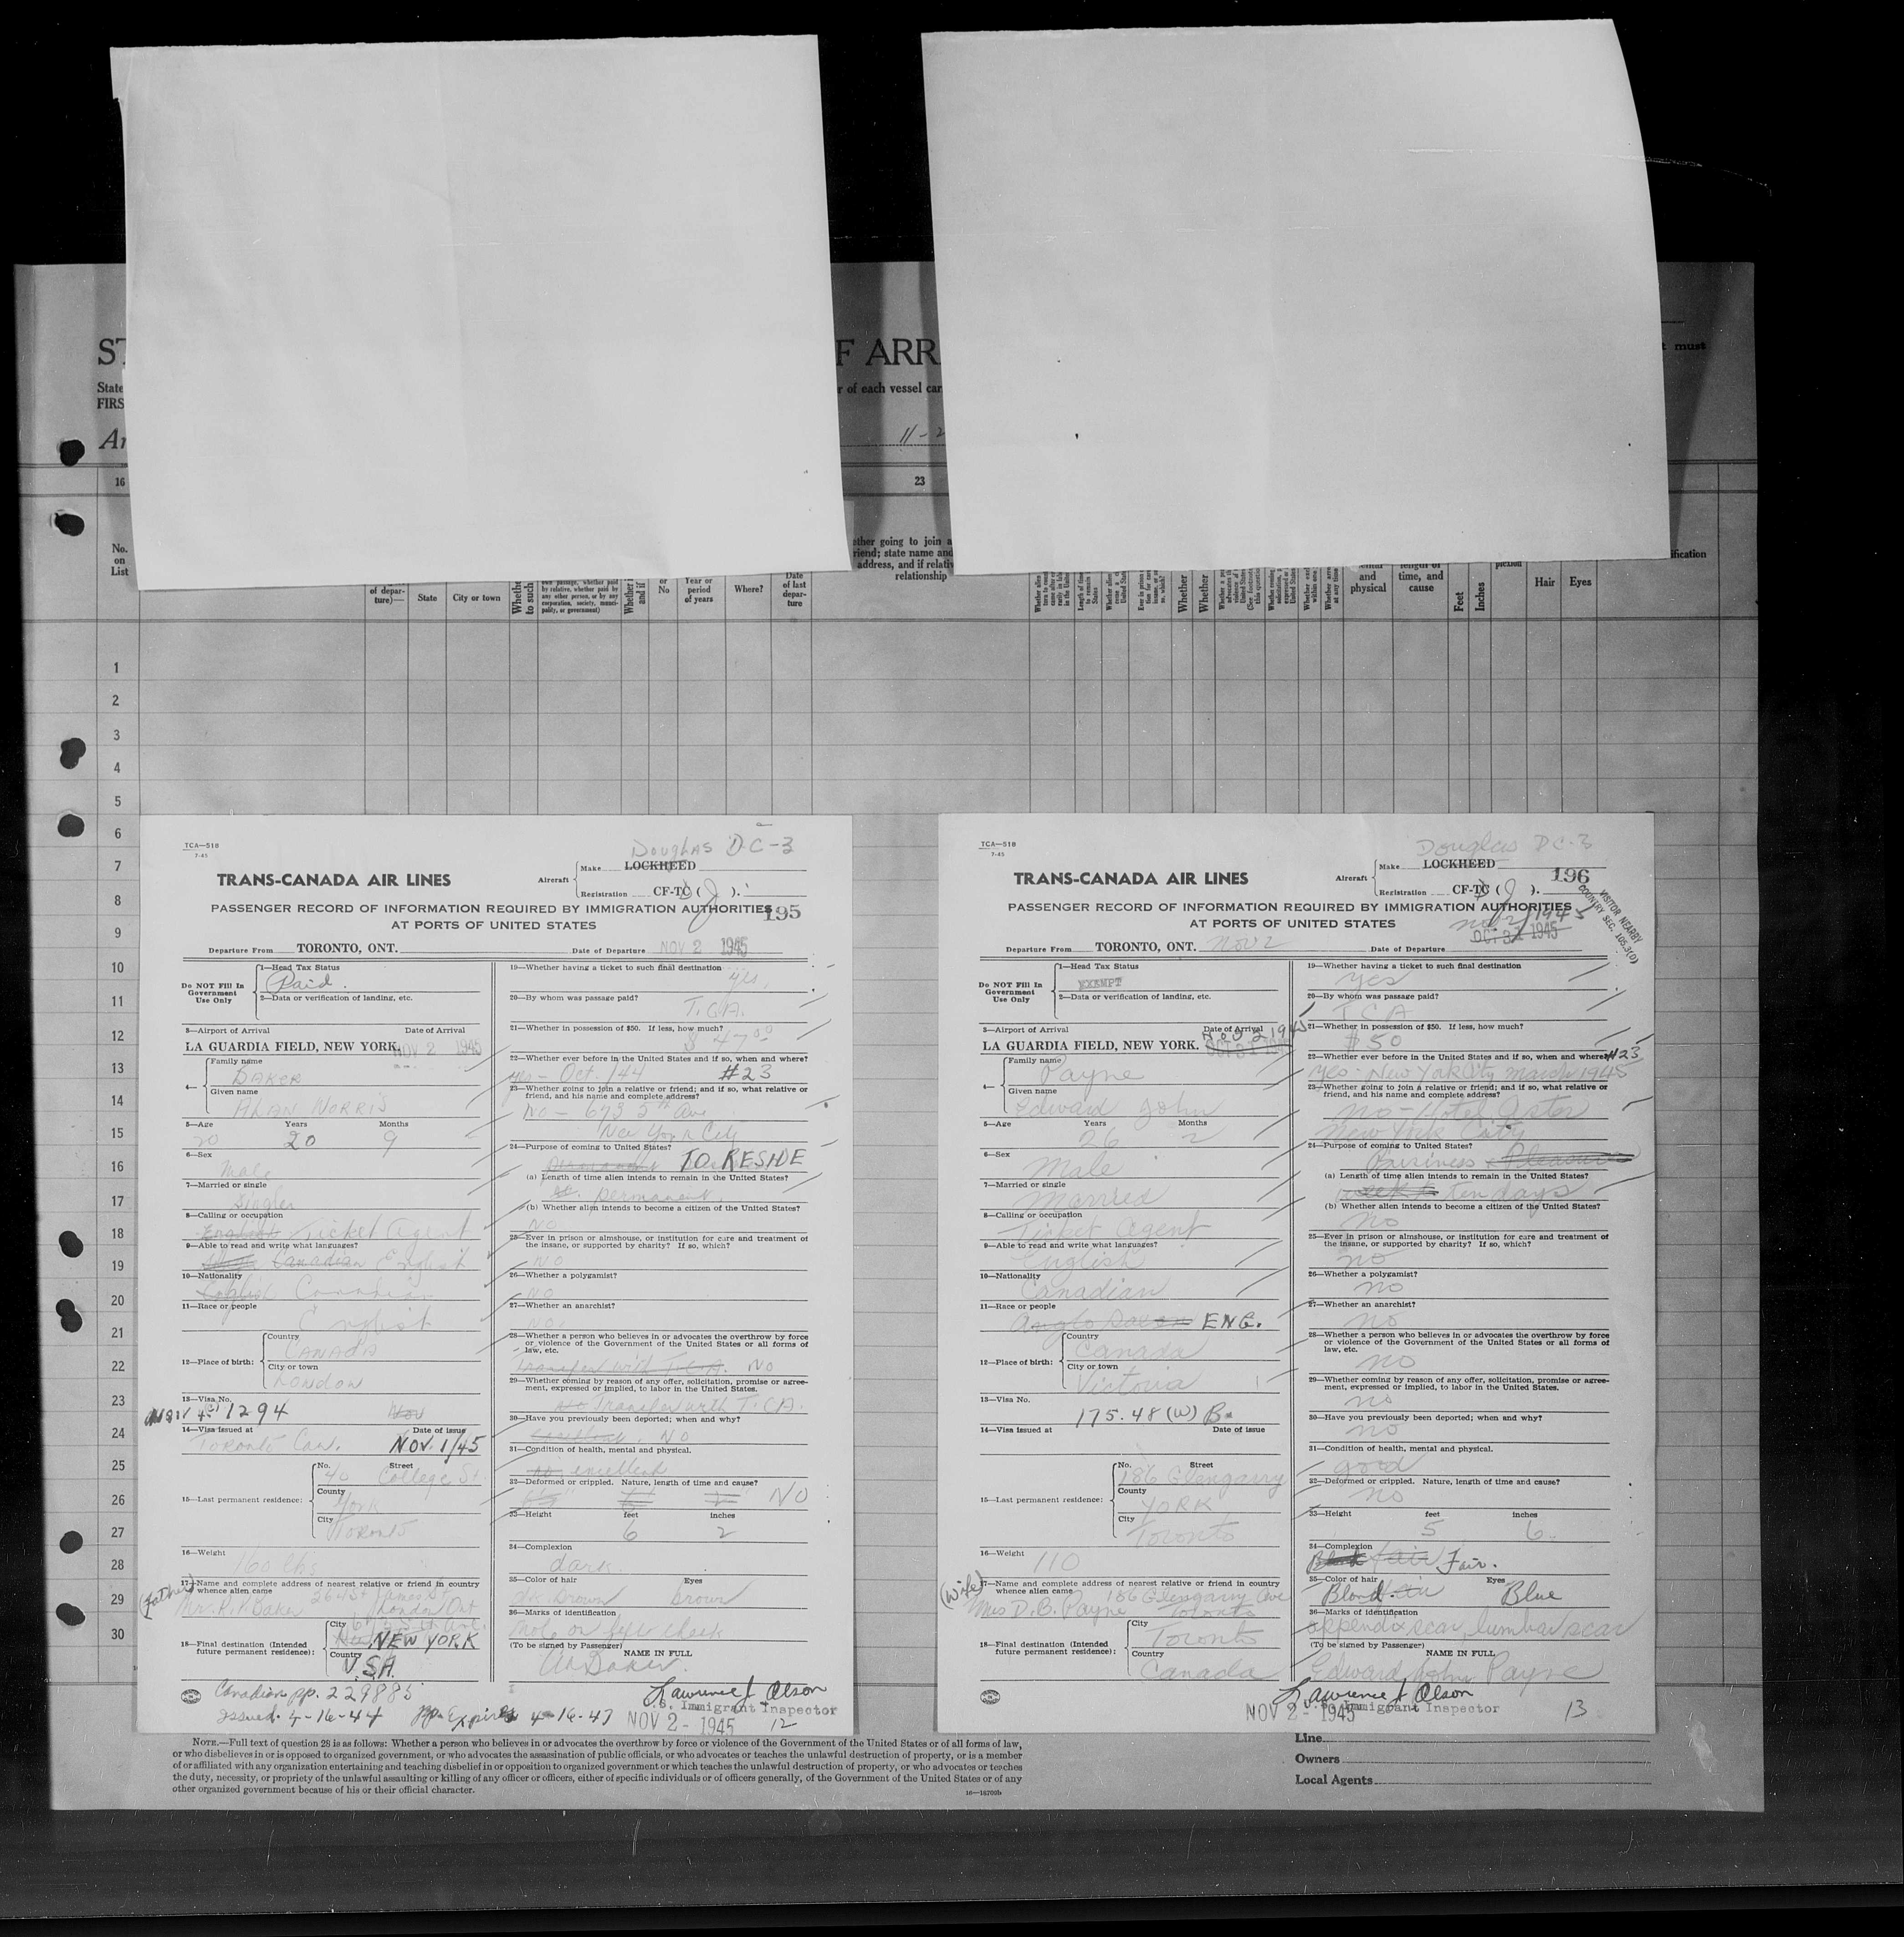 ST
F ARR
t must
State
r of each vessel car
FIRS
Ar
11-2
16
23
No. on List
ther going to join a
riend; state name and
address, and if relativ
relationship
ification
of depar-
ture)—
State
City or town
or
No
Year or
period
of years
Where?
Date
of last
depar-
ture
and
physical
time, and
cause
Feet
Inches
Hair
Eyes
1
2
3
4
5
6
7
8
9
10
11
12
13
14
15
16
17
18
19
20
21
22
23
24
25
26
27
28
29
30
TCA—518
7-45
Douglas DC-3
Aircraft
Make LOCKHEED
Registration CF-TC ( J ).
TRANS-CANADA AIR LINES
PASSENGER RECORD OF INFORMATION REQUIRED BY IMMIGRATION AUTHORITIES
195
AT PORTS OF UNITED STATES
Departure From TORONTO, ONT. Date of Departure NOV 2 1945
Do NOT Fill In Government Use Only
1—Head Tax Status
Paid.
2—Data or verification of landing, etc.
3—Airport of Arrival Date of Arrival
LA GUARDIA FIELD, NEW YORK. NOV 2 1945
4—
Family name
BAKER
Given name
ALAN NORRIS
5—Age Years Months
20 20 9
6—Sex
Male
7—Married or single
Single
8—Calling or occupation
English Ticket Agent
9—Able to read and write what languages?
Canadian English
10—Nationality
English Canadian
11—Race or people
English
12—Place of birth:
Country
CANADA
City or town
London
13—Visa No.
1294 Nov
14—Visa issued at Date of issue
Toronto Can. NOV. 1/45
15—Last permanent residence:
No. Street
40 College St
County
York
City
Toronto
16—Weight
160 lbs
17—Name and complete address of nearest relative or friend in country
whence alien came
(Father) Mr. R. P. Baker St James St London Ont
18—Final destination (Intended
future permanent residence):
City
NEW YORK
Country
U.S.A.
Canadian pp. 229885
Issued 4-16-44 pp. Expires 4-16-47
19—Whether having a ticket to such final destination
yes.
20—By whom was passage paid?
T.C.A.
21—Whether in possession of $50. If less, how much?
$ 47.00
22—Whether ever before in the United States and if so, when and where?
yes – Oct. /44 #23
23—Whether going to join a relative or friend; and if so, what relative or
friend, and his name and complete address?
No – 673 5th Ave
New York City
24—Purpose of coming to United States?
TO RESIDE
(a) Length of time alien intends to remain in the United States?
permanent
(b) Whether alien intends to become a citizen of the United States?
NO
25—Ever in prison or almshouse, or institution for care and treatment of
the insane, or supported by charity? If so, which?
NO
26—Whether a polygamist?
NO
27—Whether an anarchist?
NO
28—Whether a person who believes in or advocates the overthrow by force
or violence of the Government of the United States or all forms of
law, etc.
Transfer with T.C.A. NO
29—Whether coming by reason of any offer, solicitation, promise or agree-
ment, expressed or implied, to labor in the United States.
No Transfer with T.C.A.
30—Have you previously been deported; when and why?
excellent, NO
31—Condition of health, mental and physical.
No excellent
32—Deformed or crippled. Nature, length of time and cause?
NO
33—Height feet inches
6 2
34—Complexion
dark.
35—Color of hair Eyes
dk. Brown brown
36—Marks of identification
Mole on left cheek
(To be signed by Passenger) NAME IN FULL
AN Baker.
Lawrence J Olson
U.S. Immigrant Inspector
NOV 2 - 1945
12
TCA—518
7-45
Douglas DC-3
Aircraft
Make LOCKHEED
Registration CF-TC ( J ).
196
TRANS-CANADA AIR LINES
PASSENGER RECORD OF INFORMATION REQUIRED BY IMMIGRATION AUTHORITIES
AT PORTS OF UNITED STATES
VISITOR NEARBY
COUNTRY SEC. 105.3(D)
Nov 2 1945
Departure From TORONTO, ONT. Nov 2 Date of Departure OCT 31 1945
Do NOT Fill In Government Use Only
1—Head Tax Status
EXEMPT
2—Data or verification of landing, etc.
3—Airport of Arrival Date of Arrival
Nov 2 1945
LA GUARDIA FIELD, NEW YORK. OCT 31 1945
4—
Family name
Payne
Given name
Edward John
5—Age Years Months
26 2
6—Sex
Male
7—Married or single
Married
8—Calling or occupation
Ticket Agent
9—Able to read and write what languages?
English
10—Nationality
Canadian
11—Race or people
Anglo Saxon ENG.
12—Place of birth:
Country
Canada
City or town
Victoria
13—Visa No.
175.48 (W) B
14—Visa issued at Date of issue
15—Last permanent residence:
No. Street
186 Glengarry
County
YORK
City
Toronto
16—Weight
110
17—Name and complete address of nearest relative or friend in country
whence alien came
(Wife) Mrs D. B. Payne 186 Glengarry Ave Toronto
18—Final destination (Intended
future permanent residence):
City
Toronto
Country
Canada
19—Whether having a ticket to such final destination
yes
20—By whom was passage paid?
TCA
21—Whether in possession of $50. If less, how much?
$50
22—Whether ever before in the United States and if so, when and where?
#23
yes – New York City March 1945
23—Whether going to join a relative or friend; and if so, what relative or
friend, and his name and complete address?
no – Hotel Astor
New York City
24—Purpose of coming to United States?
Business & Pleasure
(a) Length of time alien intends to remain in the United States?
week ten days
(b) Whether alien intends to become a citizen of the United States?
no
25—Ever in prison or almshouse, or institution for care and treatment of
the insane, or supported by charity? If so, which?
no
26—Whether a polygamist?
no
27—Whether an anarchist?
no
28—Whether a person who believes in or advocates the overthrow by force
or violence of the Government of the United States or all forms of
law, etc.
no
29—Whether coming by reason of any offer, solicitation, promise or agree-
ment, expressed or implied, to labor in the United States.
no
30—Have you previously been deported; when and why?
no
31—Condition of health, mental and physical.
good
32—Deformed or crippled. Nature, length of time and cause?
no
33—Height feet inches
5 6
34—Complexion
fair Fair.
35—Color of hair Eyes
Blond. Blue
36—Marks of identification
appendix scar, lumbar scar
(To be signed by Passenger) NAME IN FULL
Edward John Payne
Lawrence J Olson
U.S. Immigrant Inspector
NOV 2 - 1945
13
NOTE.—Full text of question 28 is as follows: Whether a person who believes in or advocates the overthrow by force or violence of the Government of the United States or of all forms of law,
or who disbelieves in or is opposed to organized government, or who advocates the assassination of public officials, or who advocates or teaches the unlawful destruction of property, or is a member
of or affiliated with any organization entertaining and teaching disbelief in or opposition to organized government or which teaches the unlawful destruction of property, or who advocates or teaches
the duty, necessity, or propriety of the unlawful assaulting or killing of any officer or officers, either of specific individuals or of officers generally, of the Government of the United States or of any
other organized government because of his or their official character.
16—18700b
Line
Owners
Local Agents